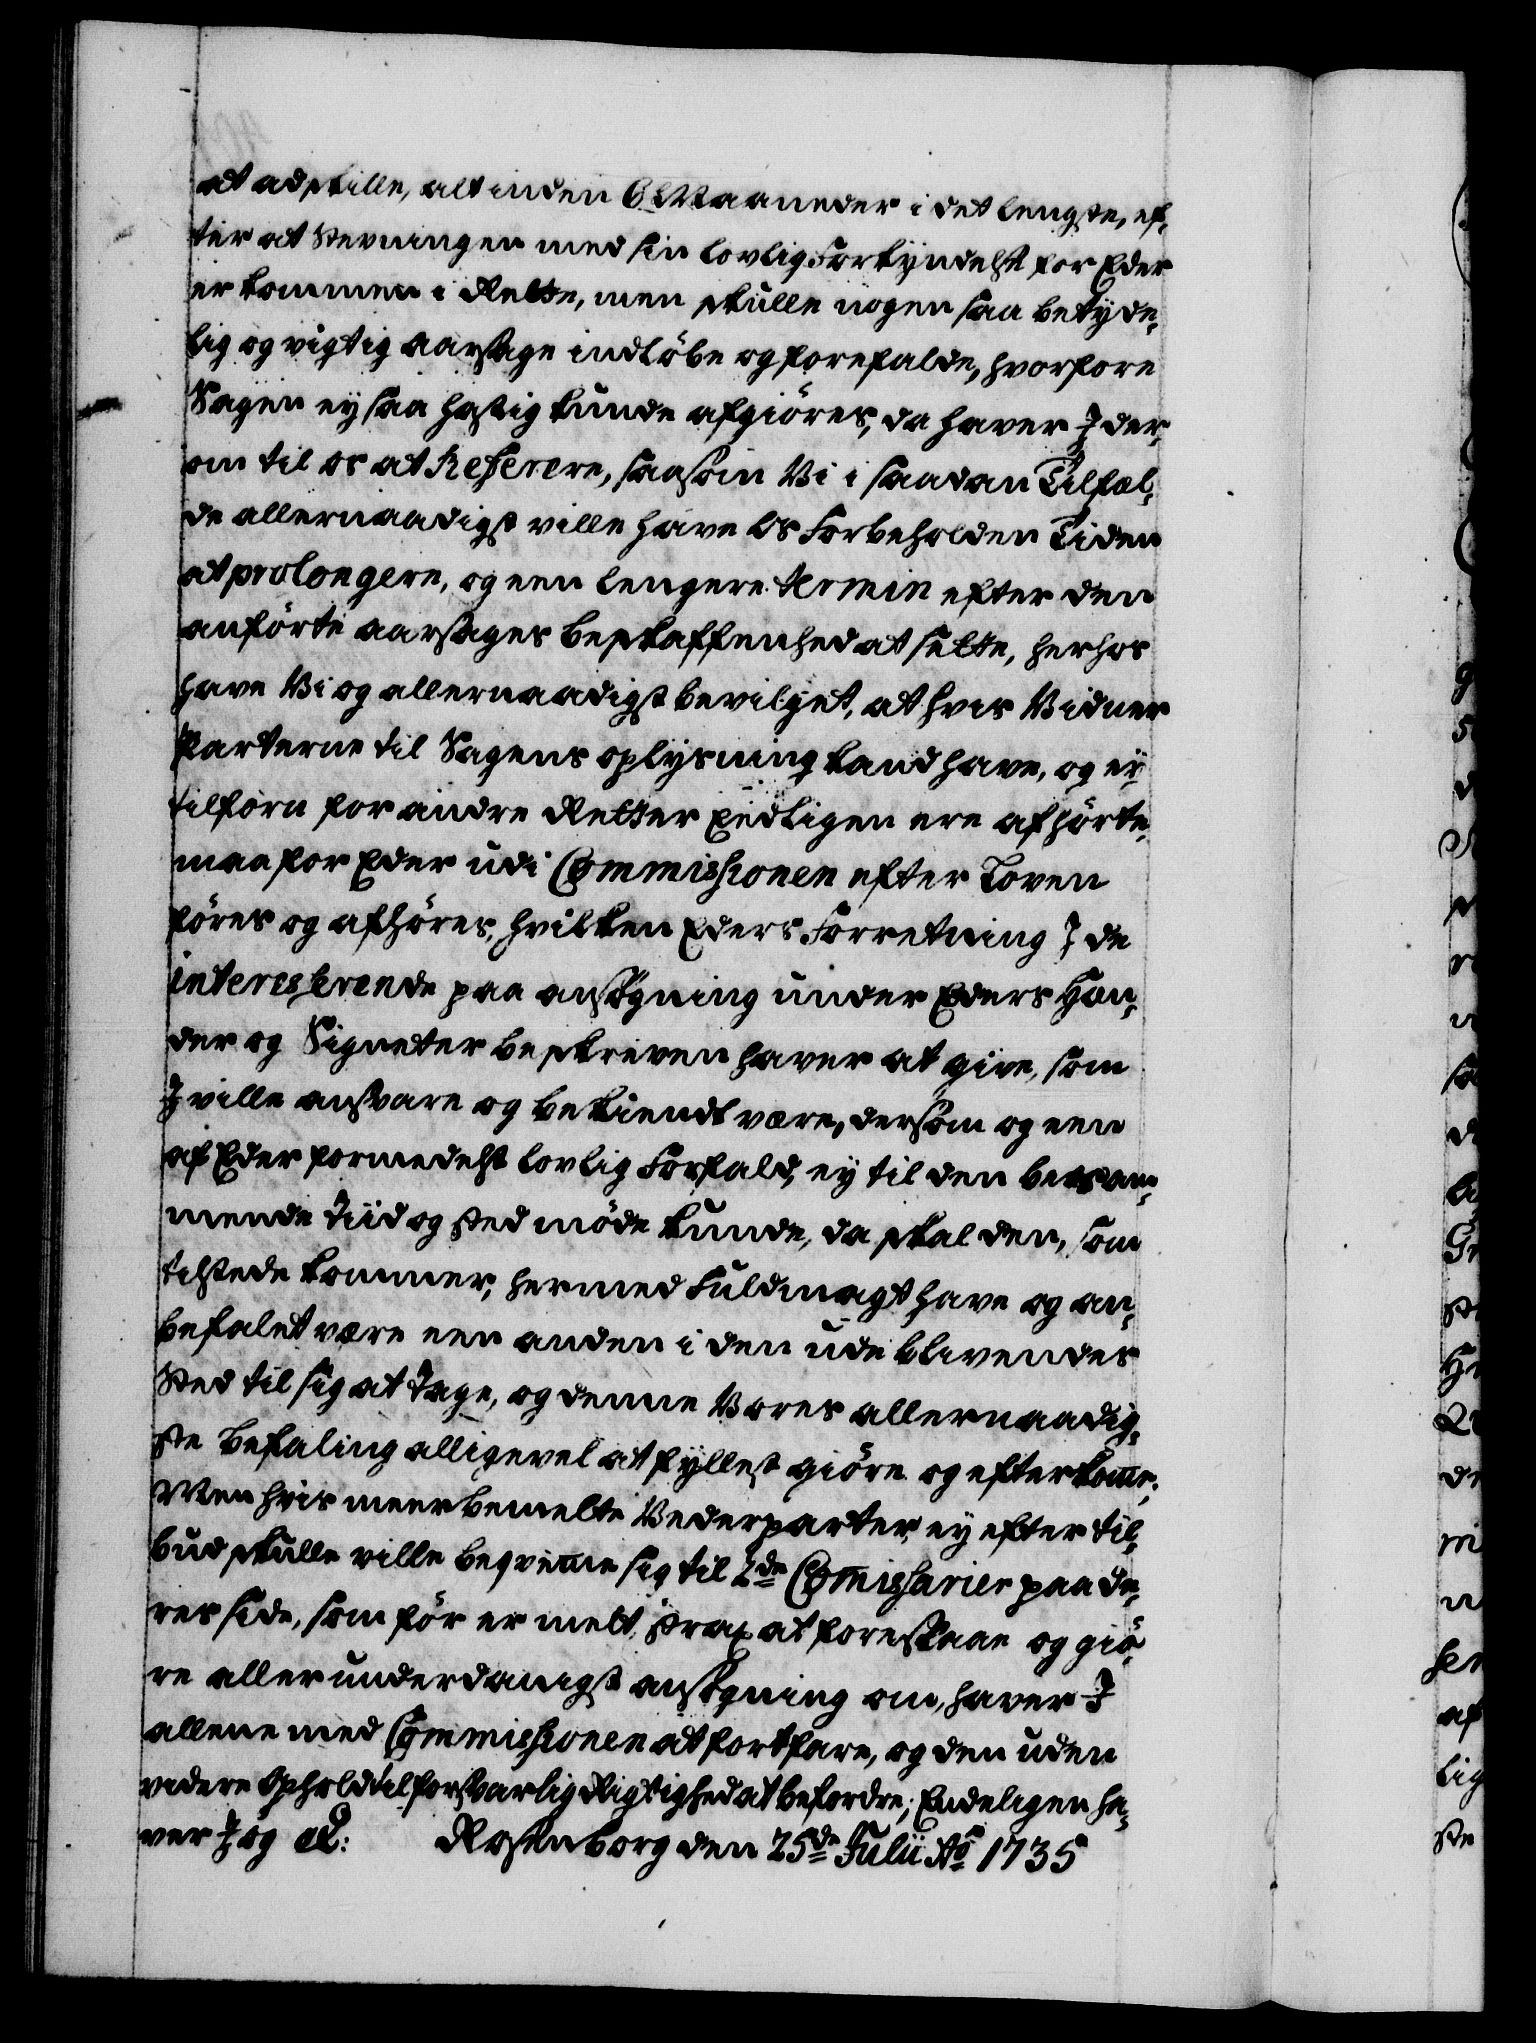 at adskille, alt inden 6 Maaneder i det lengste, ef-
ter at Stevningen med sin lovlig Forkyndelse for Eder
er kommen i Rette, men skulle nogen saa betyde-
lig og vigtig aarsage indløbe og forefalde, hvorfore
Sagen ey saa hastig kunde afgiøres, da haver I der-
om til os at Referere, saasom Vi i saadan Tilfæl-
de allernaadigst ville have Os Forbeholden Tiden
at prolongere, og een lengere termin efter den
anførte aarsages beskaffenhed at sette, herhos
have Vi og allernaadigst bevilget, at hvis Vidner
Parterne til Sagens oplysning kand have, og ey
tilforn for andre Retter Eedligen ere afhørte,
maa for Eder udi Commissionen efter Loven
føres og afhøres, hvilken Eders Forretning I de
interesserende paa ansøgning under Eders Hæn-
der og Signeter beskreven haver at give, som
I ville ansvare og bekiendt være, dersom og een
af Eder formedelst lovlig Forfald, ey til den beram-
mende Tiid og Sted møde kunde, da skal den, som
tilstede kommer, hermed Fuldmagt have og an-
befalet være een anden i den udeblivendes
Sted til sig at tage, og denne Vores allernaadig-
ste befaling alligevel at fyllest giøre og efterkomme.
Men hvis meerbemelte Vederparter, ey efter til-
bud skulle ville beqvemme sig til 2de Commissarier paa de-
res side, som før er melt, strax at foreslaae og giø-
re allerunderdanigst ansøgning om, haver I
allene med Commissionen at fortfare, og den uden
videre Ophold til forsvarlig Rigtighed at befordre; Endeligen ha-
ver I og &: Rosenborg den 25de Julii Ao 1735